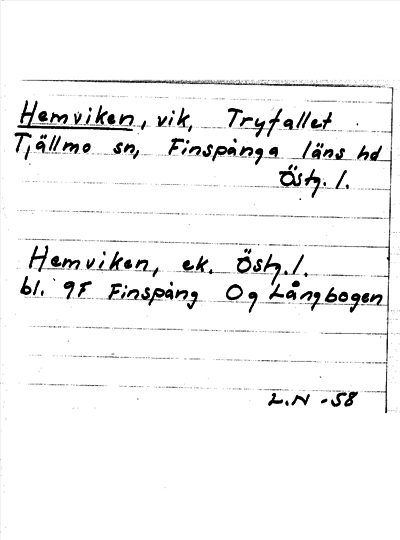 Hemviken, vik, Tryfallet
Tjällmo sn, Finspånga läns hd
Östg. l.
Hemviken, ek. Östg. l.
bl. 9F Finspång Ög Långbogen
L.N -58